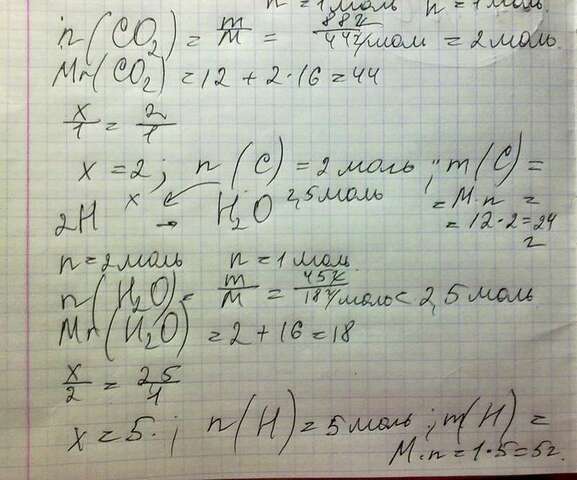 n = 1 моль n = 1 моль.
n(CO₂) = m/M = 88г/44г/моль = 2 моль.
Mr(CO₂) = 12 + 2·16 = 44
x/1 = 2/1
x = 2; n(C) = 2 моль; m(C) =
= M·n =
= 12·2 = 24
г
x 2,5 моль
2H → H₂O
n = 2 моль n = 1 моль
n(H₂O) = m/M = 45г/18г/моль = 2,5 моль
Mr(H₂O) = 2 + 16 = 18
x/2 = 2,5/1
x = 5.; n(H) = 5 моль; m(H) =
M·n = 1·5 = 5г.